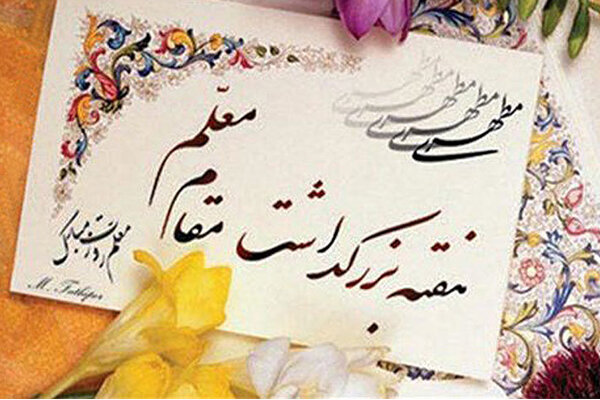 مطهری مطهری مطهری مطهری مطهری
هفته بزرگداشت
مقام معلم
معلم روزت مبارک
M. Fathipor